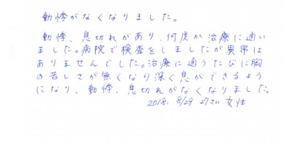 動悸がなくなりました。
動悸、息切れがあり、何度か治療に通い
ました。病院で検査をしましたが異常は
ありませんでした。治療に通うたびに胸
の苦しさが無くなり深く息ができるよう
になり、動悸、息切れがなくなりました。
2018. 8/29 27さい 女性